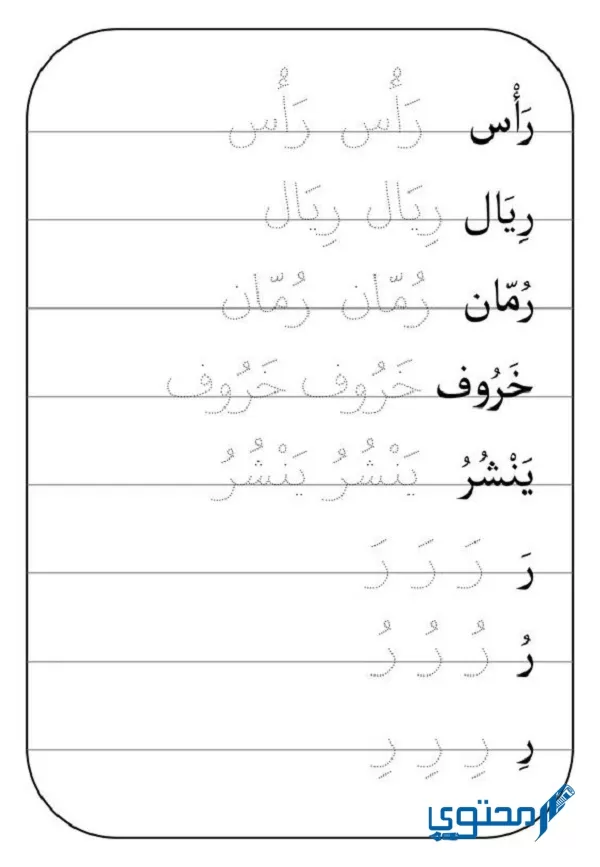 رَأْس رَأْس رَأْس
رِيَال رِيَال رِيَال
رُمّان رُمّان رُمّان
خَرُوف خَرُوف خَرُوف
يَنْشُرُ يَنْشُرُ يَنْشُرُ
رَ رَ رَ رَ
رُ رُ رُ رُ
رِ رِ رِ رِ
محتوى